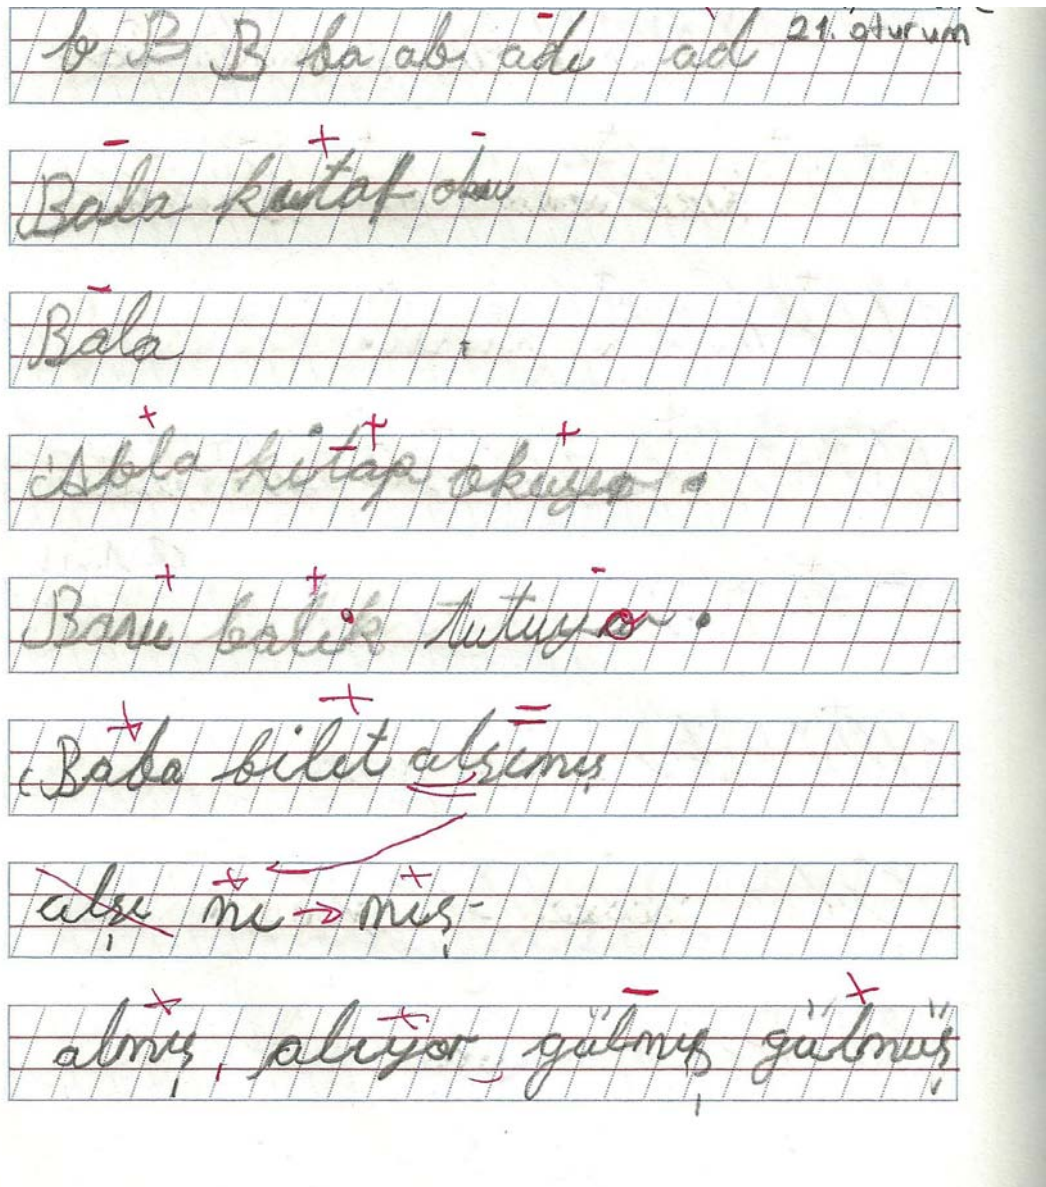 21. oturum
b B B ba ab adı ad
Bala kutat oku
Bala
Abla kitap okuyor .
Banu balık tutuyor .
Baba bilet alşımış
alşı mı → mış -
almış, alıyor, gülmış gülmüş